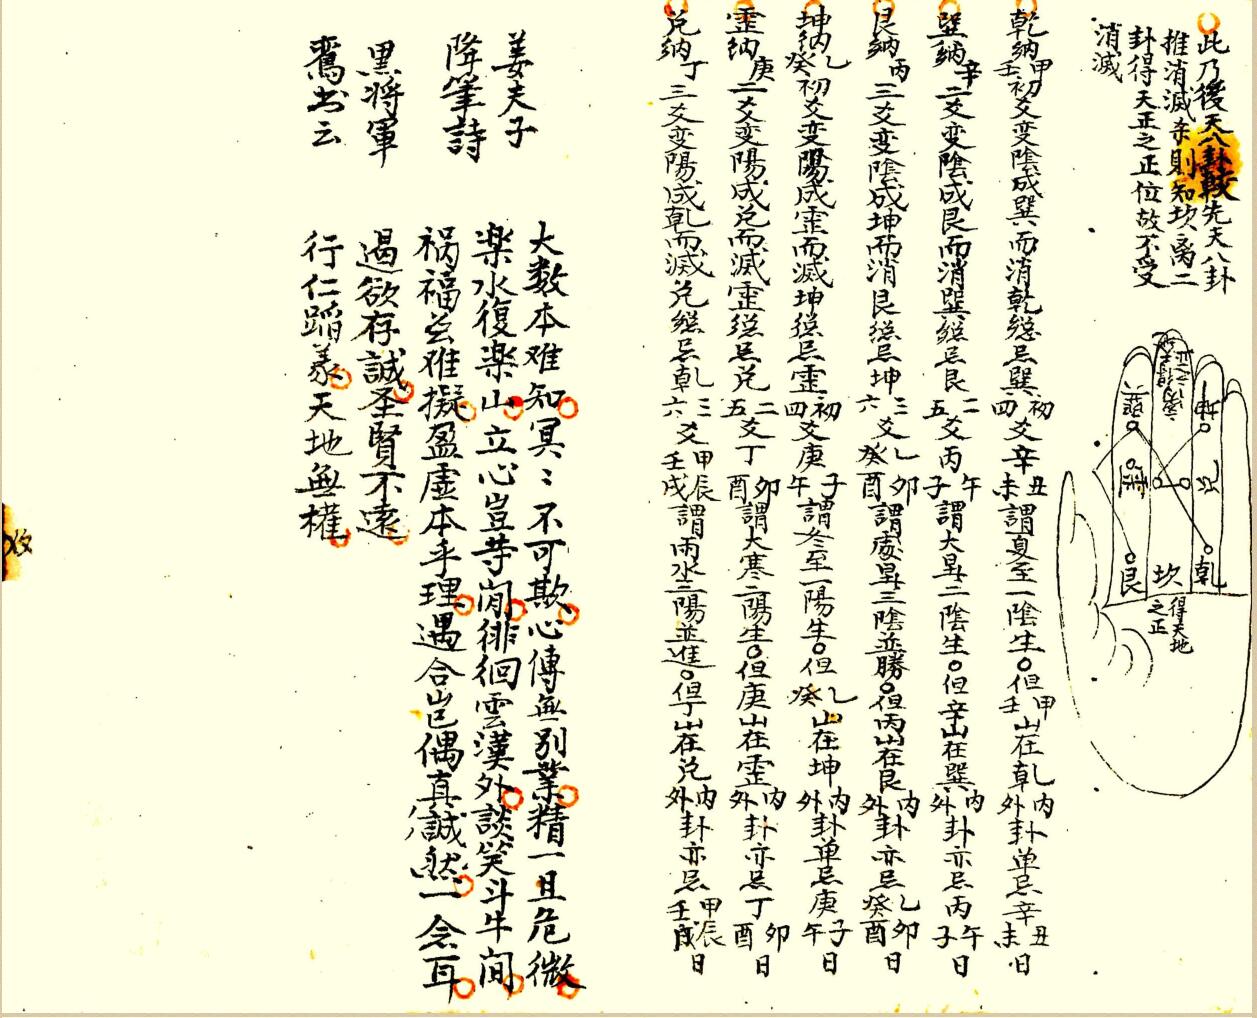 此乃後天八卦較先天八卦
推消滅杀則知坎离二
卦得天正之正位故不受
消滅
坤
兌
乾
离
坎
得天地之正
巽
震
艮
乾納甲壬初爻变陰成巽而消乾総忌巽初四爻辛丑未謂夏至一陰生。但甲壬山在乾内外卦单忌辛丑未日
巽納辛二爻变陰成艮而消巽総忌艮二五爻丙午子謂大暑二陰生。但辛山在巽内外卦亦忌丙午子日
艮納丙三爻变陰成坤而消艮総忌坤三六爻乙癸卯酉謂處暑三陰並勝。但丙山在艮内外卦亦忌乙癸卯酉日
坤納乙癸初爻变陽成震而滅坤総忌震初四爻庚子午謂冬至一陽生。但乙癸山在坤内外卦单忌庚子午日
震納庚二爻变陽成兑而滅震総忌兑二五爻丁卯酉謂大寒二陽生。但庚山在震内外卦亦忌丁卯酉日
兑納丁三爻变陽成乾而滅兑総忌乾三六爻甲壬辰戌謂雨水三陽並進。但丁山在兑内外卦亦忌甲壬辰戌日
姜夫子
降筆詩
大数本难知冥〻不可欺心傳無别業精一且危微
楽水復楽山立心豈等閒徘徊雲漢外談笑斗牛間
祸福难擬盈虚本乎理遇合岂偶真誠然一念耳
黑将軍
鸾书云
遏欲存誠圣賢不遠
行仁蹈義天地無權